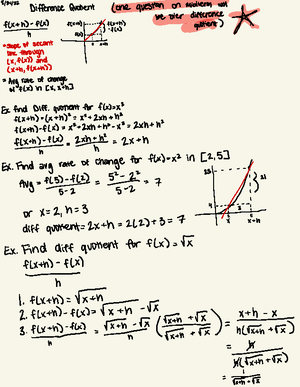 Difference Quotient (one question on midterm will be over difference quotient)
f(x+h) - f(x)
h
f(x+h)
f(x)
f(x+h) - f(x)
x x+h
h
= slope of secant
line through
(x, f(x)) and
(x+h, f(x+h))
= Avg rate of change
of f(x) in [x, x+h]
Ex. find Diff. quotient for f(x)=x²
f(x+h) = (x+h)² = x² + 2xh + h²
f(x+h) - f(x) = x² + 2xh + h² - x² = 2xh + h²
f(x+h) - f(x) / h = 2xh + h² / h = 2x + h
Ex. Find avg rate of change for f(x)=x² in [2,5]
Avg = f(5) - f(2) / 5-2 = 5² - 2² / 5-2 = 7
or x = 2, h = 3
diff quotient = 2x + h = 2(2) + 3 = 7
25
21
4
3
x x+h
Ex. Find diff quotient for f(x) = √x
f(x+h) - f(x)
h
1. f(x+h) = √x+h
2. f(x+h) - f(x) = √x+h - √x
3. f(x+h) - f(x) / h = √x+h - √x / h (√x+h + √x / √x+h + √x) = x+h - x / h(√x+h + √x)
= h / h(√x+h + √x)
= 1 / √x+h + √x